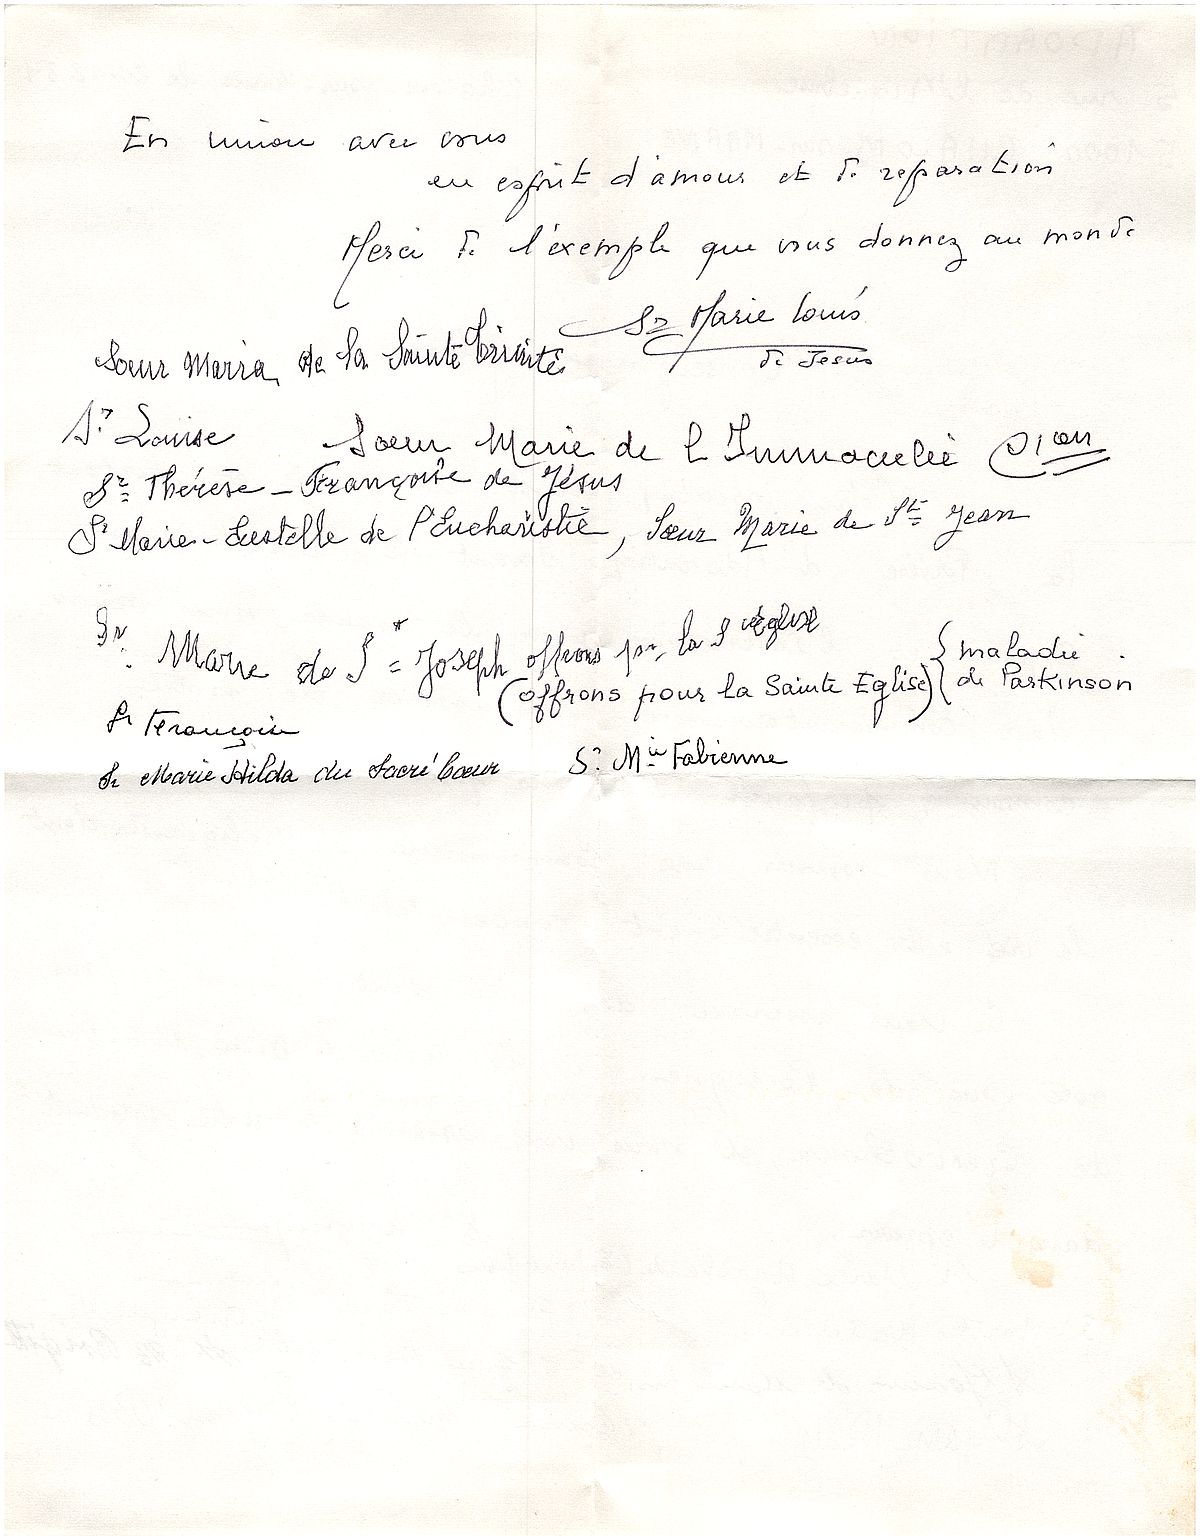 En union avec vous
en esprit d'amour et de reparation
Merci de l'exemple que vous donnez au monde
Sr Marie Louis
de Jesus
Sœur Maria de la Sainte Trinité
Sr Louise Sœur Marie de l Immaculée 91 an
Sr Thérèse-Françoise de Jésus
Sr Marie-Eustelle de l'Eucharistie, Sœur Marie de St Jean
Sr. Marie de St Joseph offrons pr la Ste église
(offrons pour la Sainte Eglise) { maladie
de Parkinson
Sr Françoise
Sr Marie Hilda du Sacré Cœur Sr Mie Fabienne